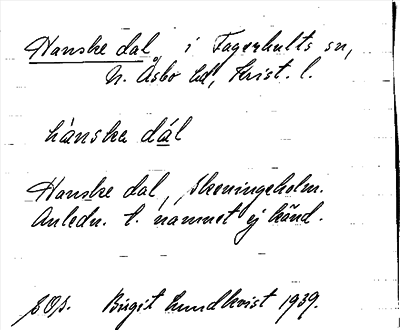 Hanske dal, i Fagerhults sn,
N. Åsbo hd, Krist. l.
hánska dál
Hanske dal, Skeningeholm.
Anledn. t. namnet ej känd.
Birgit Lundkvist 1939.